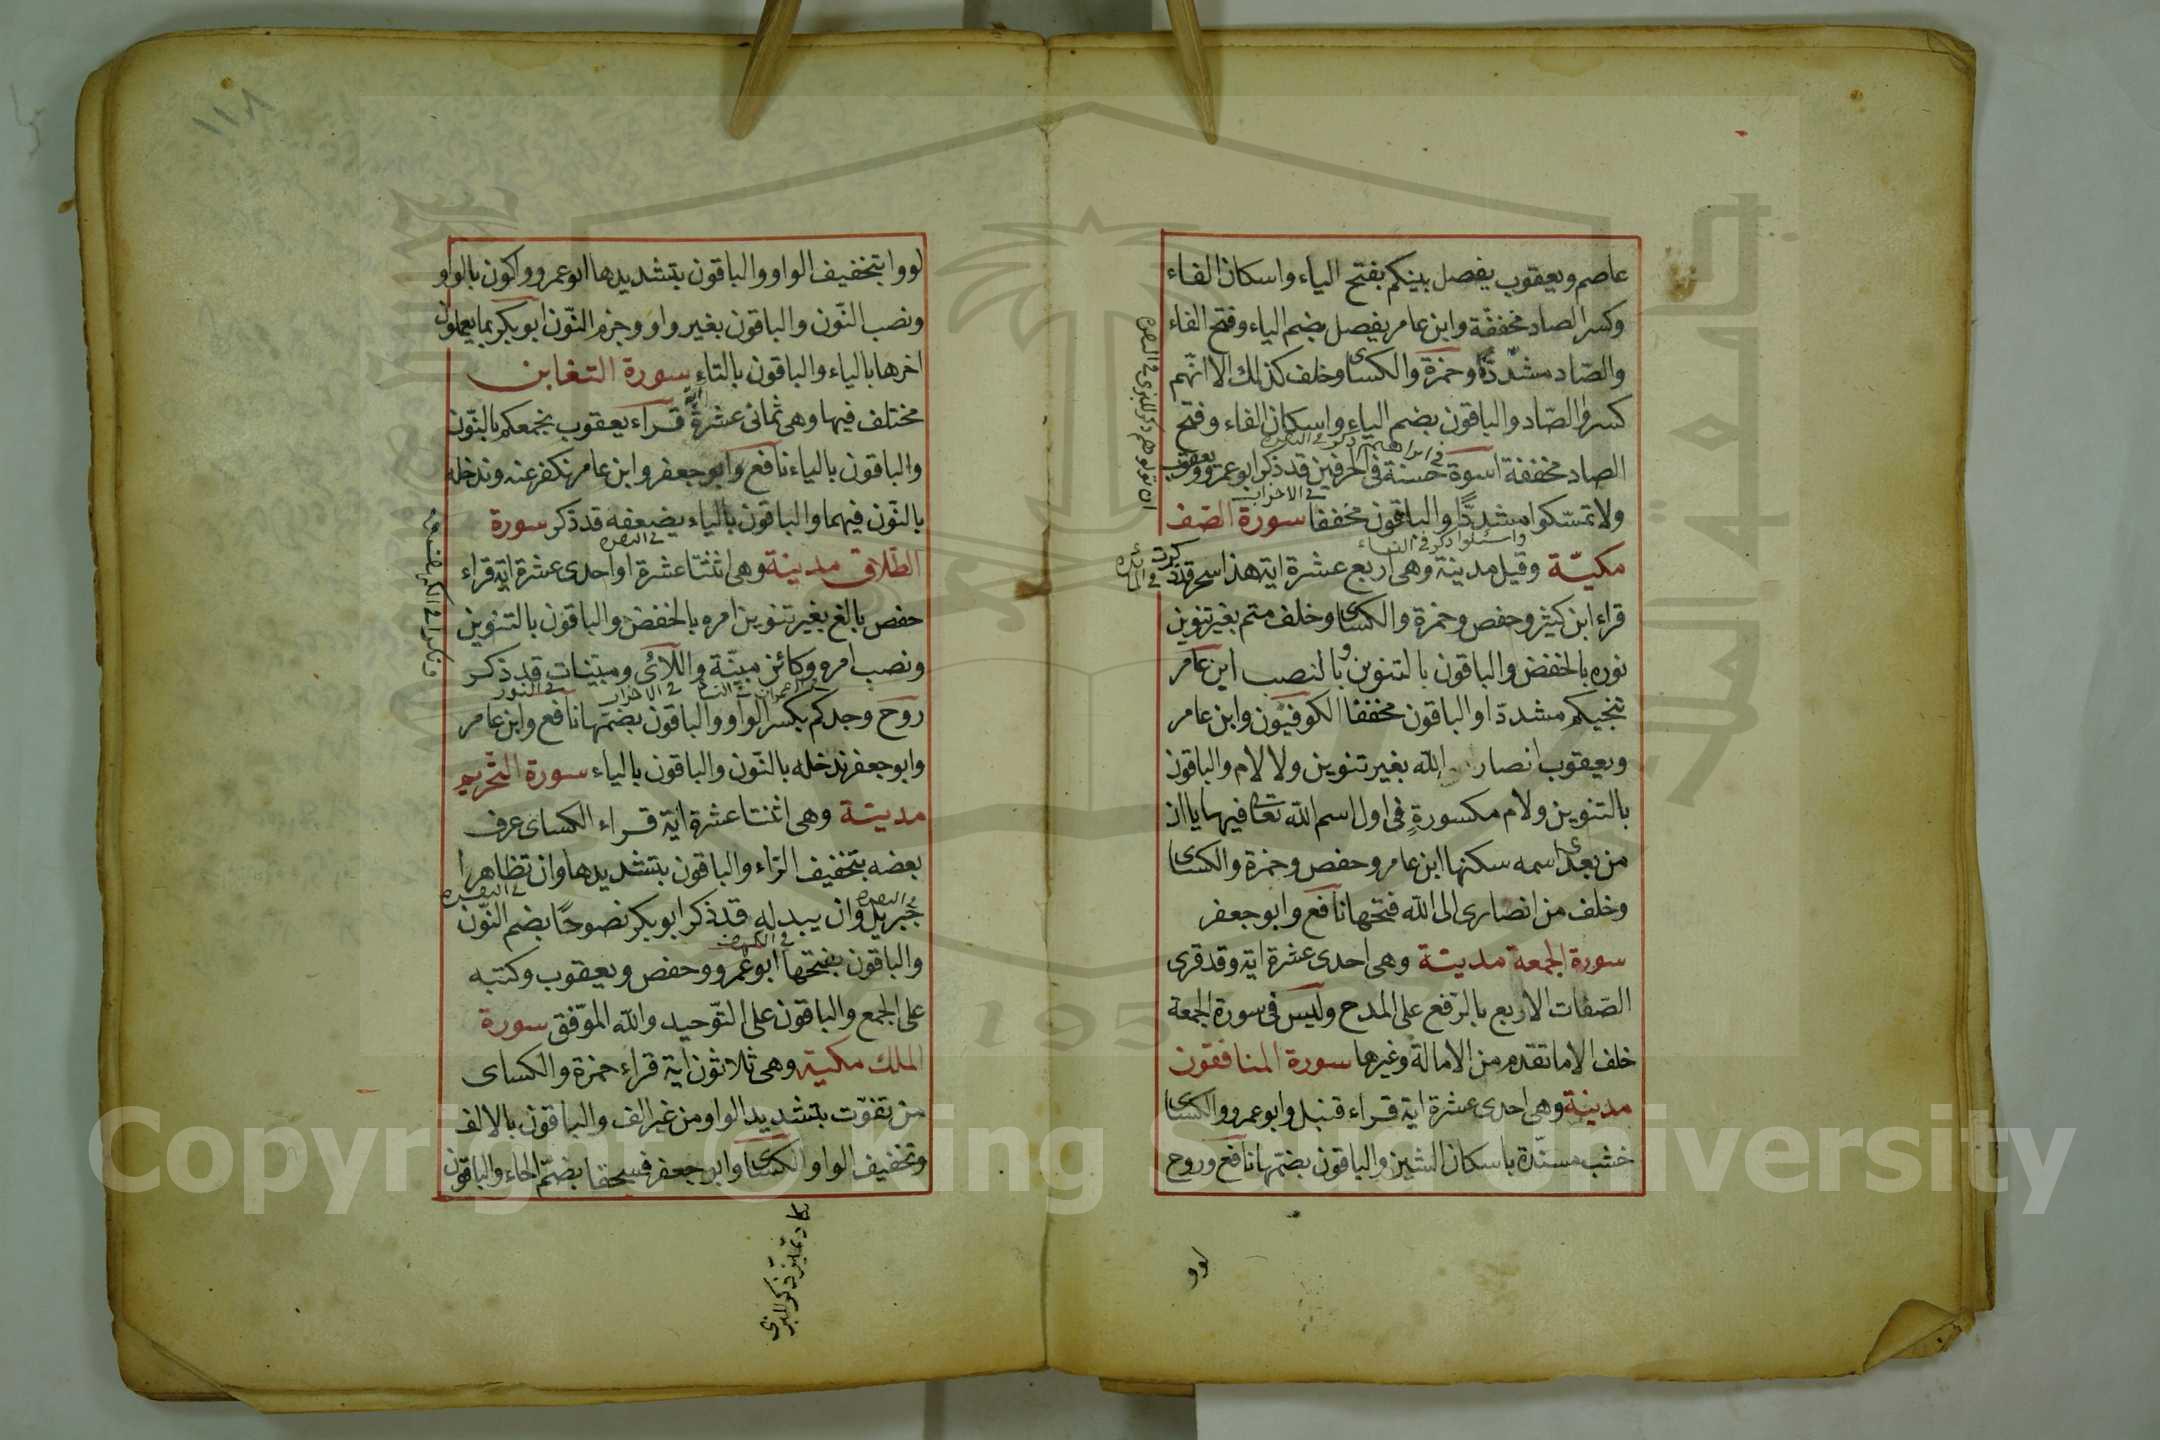 عاصم ويعقوب يفصل بينكم بفتح الياء واسكان الفاء
وكسر الصاد مخففة وابن عامر يفصل بضم الياء وفتح الفاء
والصّاد مشدّدة وحمزة والكساى وخلف كذلك الا انّهم
كسروا الصّاد والباقون بضم الياء واسكان الفاء وفتح
الصاد مخففة اسوة حسنة فى الحرفين قد ذكر ابو عمرو ويعقوب
فى الاحزاب
ولا تمسّكوا مشدّدًا والباقون مخففا سورة الصّف
واسئلوا ذكر فى النساء
مكيّة وقيل مدينة وهى اربع عشرة اية هذا سحر قد ذكرت
فى المائدة
قراء ابن كثير وحفص وحمزة والكساى وخلف متم بغير تنوين
نوره بالخفض والباقون بالتنوين وبالنصب ابن عامر
تنجيكم مشددّا والباقون مخففا الكوفيّون وابن عامر
ويعقوب انصار الله بغير تنوين ولا لام والباقون
بالتنوين ولام مكسورةٍ فى اول اسم الله تعا فيها ياان
من بعدى اسمه سكنها ابن عامر وحفص وحمزة والكساى
وخلف من انصارى الى الله فتحها نافع وابو جعفر
سورة الجمعة مدينة وهى احدى عشرة اية وقد قرى
الصّفات الاربع بالرّفع على المدح وليس فى سورة الجمعة
خلف الا ما تقدم من الامالة وغيرها سورة المنافقون
مدينة وهى احدى عشرة اية قراء قنبل وابو عمرو والكساى
خشب مسنّدة باسكان الشين والباقون بضمّها نافع وروح
لوو
ان تولوهم ذكر للبزى فى البقرة
١١٨
لووا بتخفيف الواو والباقون بتشديدها ابو عمرو واكون بالواو
ونصب النّون والباقون بغير واو وجزم النّون ابو بكر بما يعملون
اخرها بالياء والباقون بالتاء سورة التغابن
مختلف فيها وهى ثمانى عشرة اية قراء يعقوب نجمعكم بالنّون
والباقون بالياء نافع وابو جعفر وابن عامر نكفر عنه وندخله
بالنّون فيهما والباقون بالياء يضعفه قد ذكر سورة
فى البقرة
الطّلاق مدينة وهى اثنتا عشرة او احدى عشرة اية قراء
حفص بالغ بغير تنوين امره بالخفض والباقون بالتنوين
ونصب امره وكائن مبيّنة واللائى ومبيّنات قد ذكر
فى النساء فى الاحزاب فى النور
روح وجدكم بكسر الواو والباقون بضمّها نافع وابن عامر
وابو جعفر ندخله بالنّون والباقون بالياء سورة التحريم
مدينة وهى اثنتا عشرة اية قراء الكساى عرف
بعضه بتخفيف الرّاء والباقون بتشديدها وان تظاهرا
فى البقرة فى البقرة
جبريل وان يبدله قد ذكر ابو بكر نصوحًا بضم النّون
فى الكهف
والباقون بفتحها ابو عمرو وحفص ويعقوب وكتبه
على الجمع والباقون على التّوحيد والله الموّفق سورة
الملك مكية وهى ثلاثون اية قراء حمزة والكساى
من تفوّت بتشديد الواو من غير الف والباقون بالالف
وتخفيف الواو والكساى وابو جعفر فسحقا بضمّ الحاء والباقون
كاد تميز ذكر للبزى
Copyright © King Saud University
195